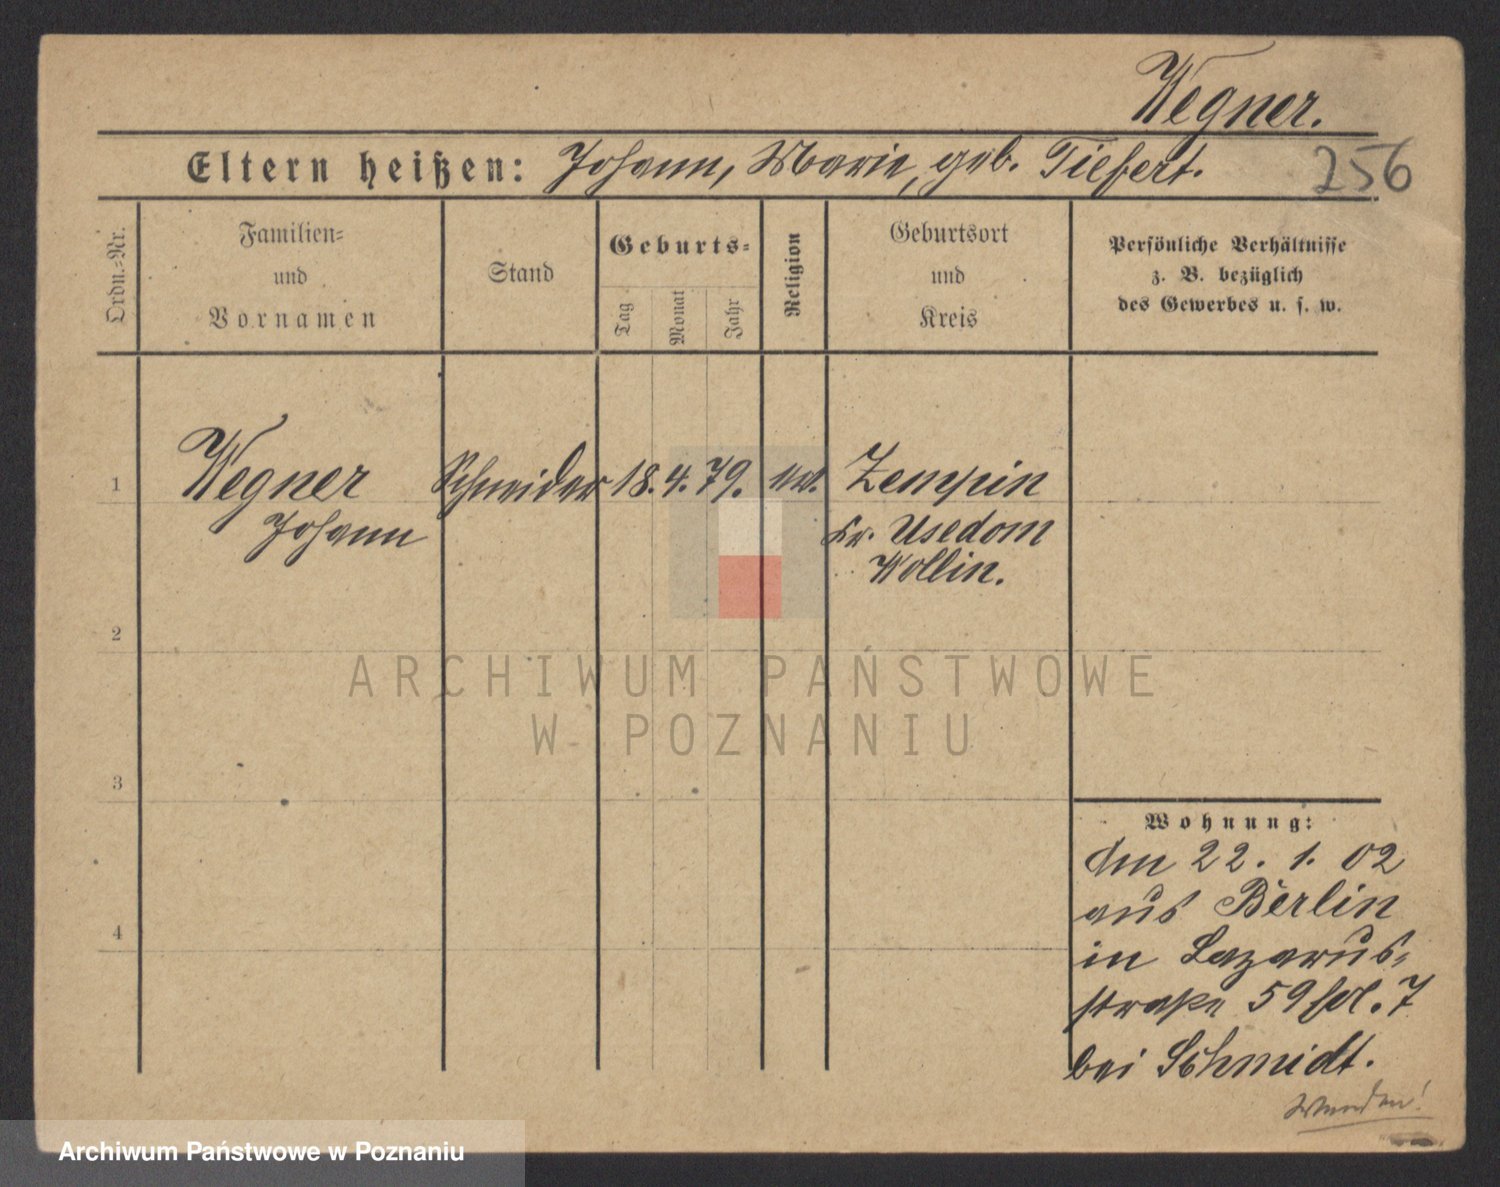 Wegner.
Eltern heißen: Johann, Marie, geb. Tiefert.
256
Ordn.-Nr.
Familien-
und
Vornamen
Stand
Geburts-
Tag
Monat
Jahr
Religion
Geburtsort
und
Kreis
Persönliche Verhältnisse
z. B. bezüglich
des Gewerbes u. s. w.
1 Wegner Schneider 18. 4. 79. ev. Zempin
Johann Kr. Usedom
Wollin.
2
ARCHIWUM PAŃSTWOWE
W POZNANIU
3
Wohnung:
den 22. 1. 02
aus Berlin
4
in Lazarus-
straße 59 7
bei Schmidt.
Wenden!
Archiwum Państwowe w Poznaniu